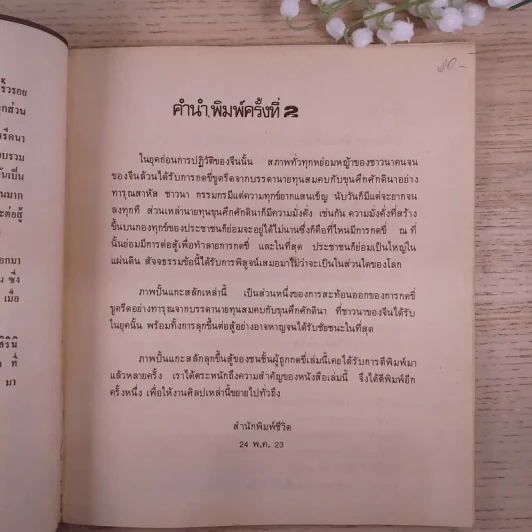 ร้วรอย
ุกส่วน
รีดนา
บรวม
ันเป็น
นมาก
ะต่อสู้
อกมา
น ซึ่ง
เมื่อ
สิรินิ
ที่
มา
20.-
คำนำ พิมพ์ครั้งที่ 2
ในยุคก่อนการปฏิวัติของจีนนั้น สภาพทั่วทุกหย่อมหญ้าของชาวนาคนจน
ของจีนล้วนได้รับการกดขี่ขูดรีดจากบรรดานายทุนสมคบกับขุนศึกศักดินาอย่าง
ทารุณสาหัส ชาวนา กรรมกรมีแต่ความทุกข์ยากแสนเข็ญ นับวันก็มีแต่จะยากจน
ลงทุกที ส่วนเหล่านายทุนขุนศึกศักดินาก็มีความมั่งคั่ง เช่นกัน ความมั่งคั่งที่สร้าง
ขึ้นบนกองทุกข์ของประชาชนก็ย่อมจะอยู่ได้ไม่นานซึ่งก็คือที่ไหนมีการกดขี่ ณ ที่
นั้นย่อมมีการต่อสู้เพื่อทำลายการกดขี่ และในที่สุด ประชาชนก็ย่อมเป็นใหญ่ใน
แผ่นดิน สัจจธรรมข้อนี้ได้รับการพิสูจน์เสมอมาไม่ว่าจะเป็นในส่วนใดของโลก
ภาพปั้นแกะสลักเหล่านี้ เป็นส่วนหนึ่งของการสะท้อนออกของการกดขี่
ขูดรีดอย่างทารุณจากบรรดานายทุนสมคบกับขุนศึกศักดินา ที่ชาวนาของจีนได้รับ
ในยุคนั้น พร้อมทั้งการลุกขึ้นต่อสู้อย่างอาจหาญจนได้รับชัยชนะในที่สุด
ภาพปั้นแกะสลักลุกขึ้นสู้ของชนชั้นผู้ถูกกดขี่เล่มนี้เคยได้รับการตีพิมพ์มา
แล้วหลายครั้ง เราได้ตระหนักถึงความสำคัญของหนังสือเล่มนี้ จึงได้ตีพิมพ์อีก
ครั้งหนึ่ง เพื่อให้งานศิลปเหล่านี้ขยายไปทั่วถึง
สำนักพิมพ์ชีวิต
24 พ.ค. 23